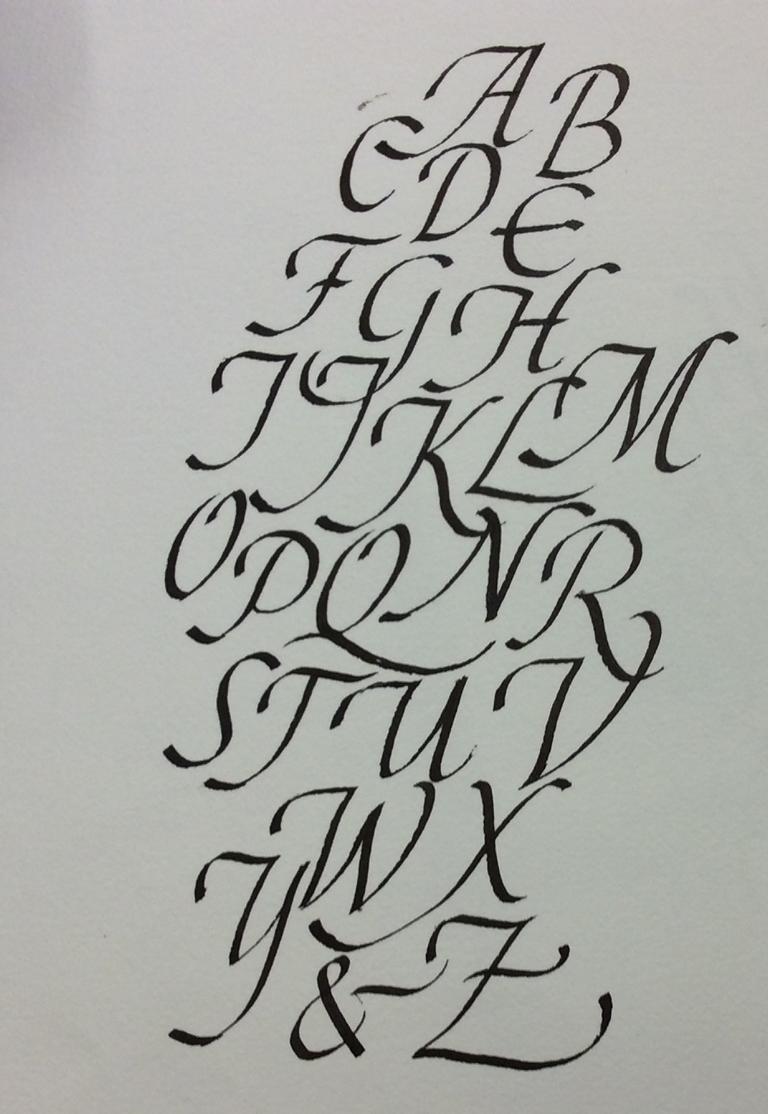 A B
C D E
F G H
I J K L M
O P Q N R
S T U V
W X
Y & Z